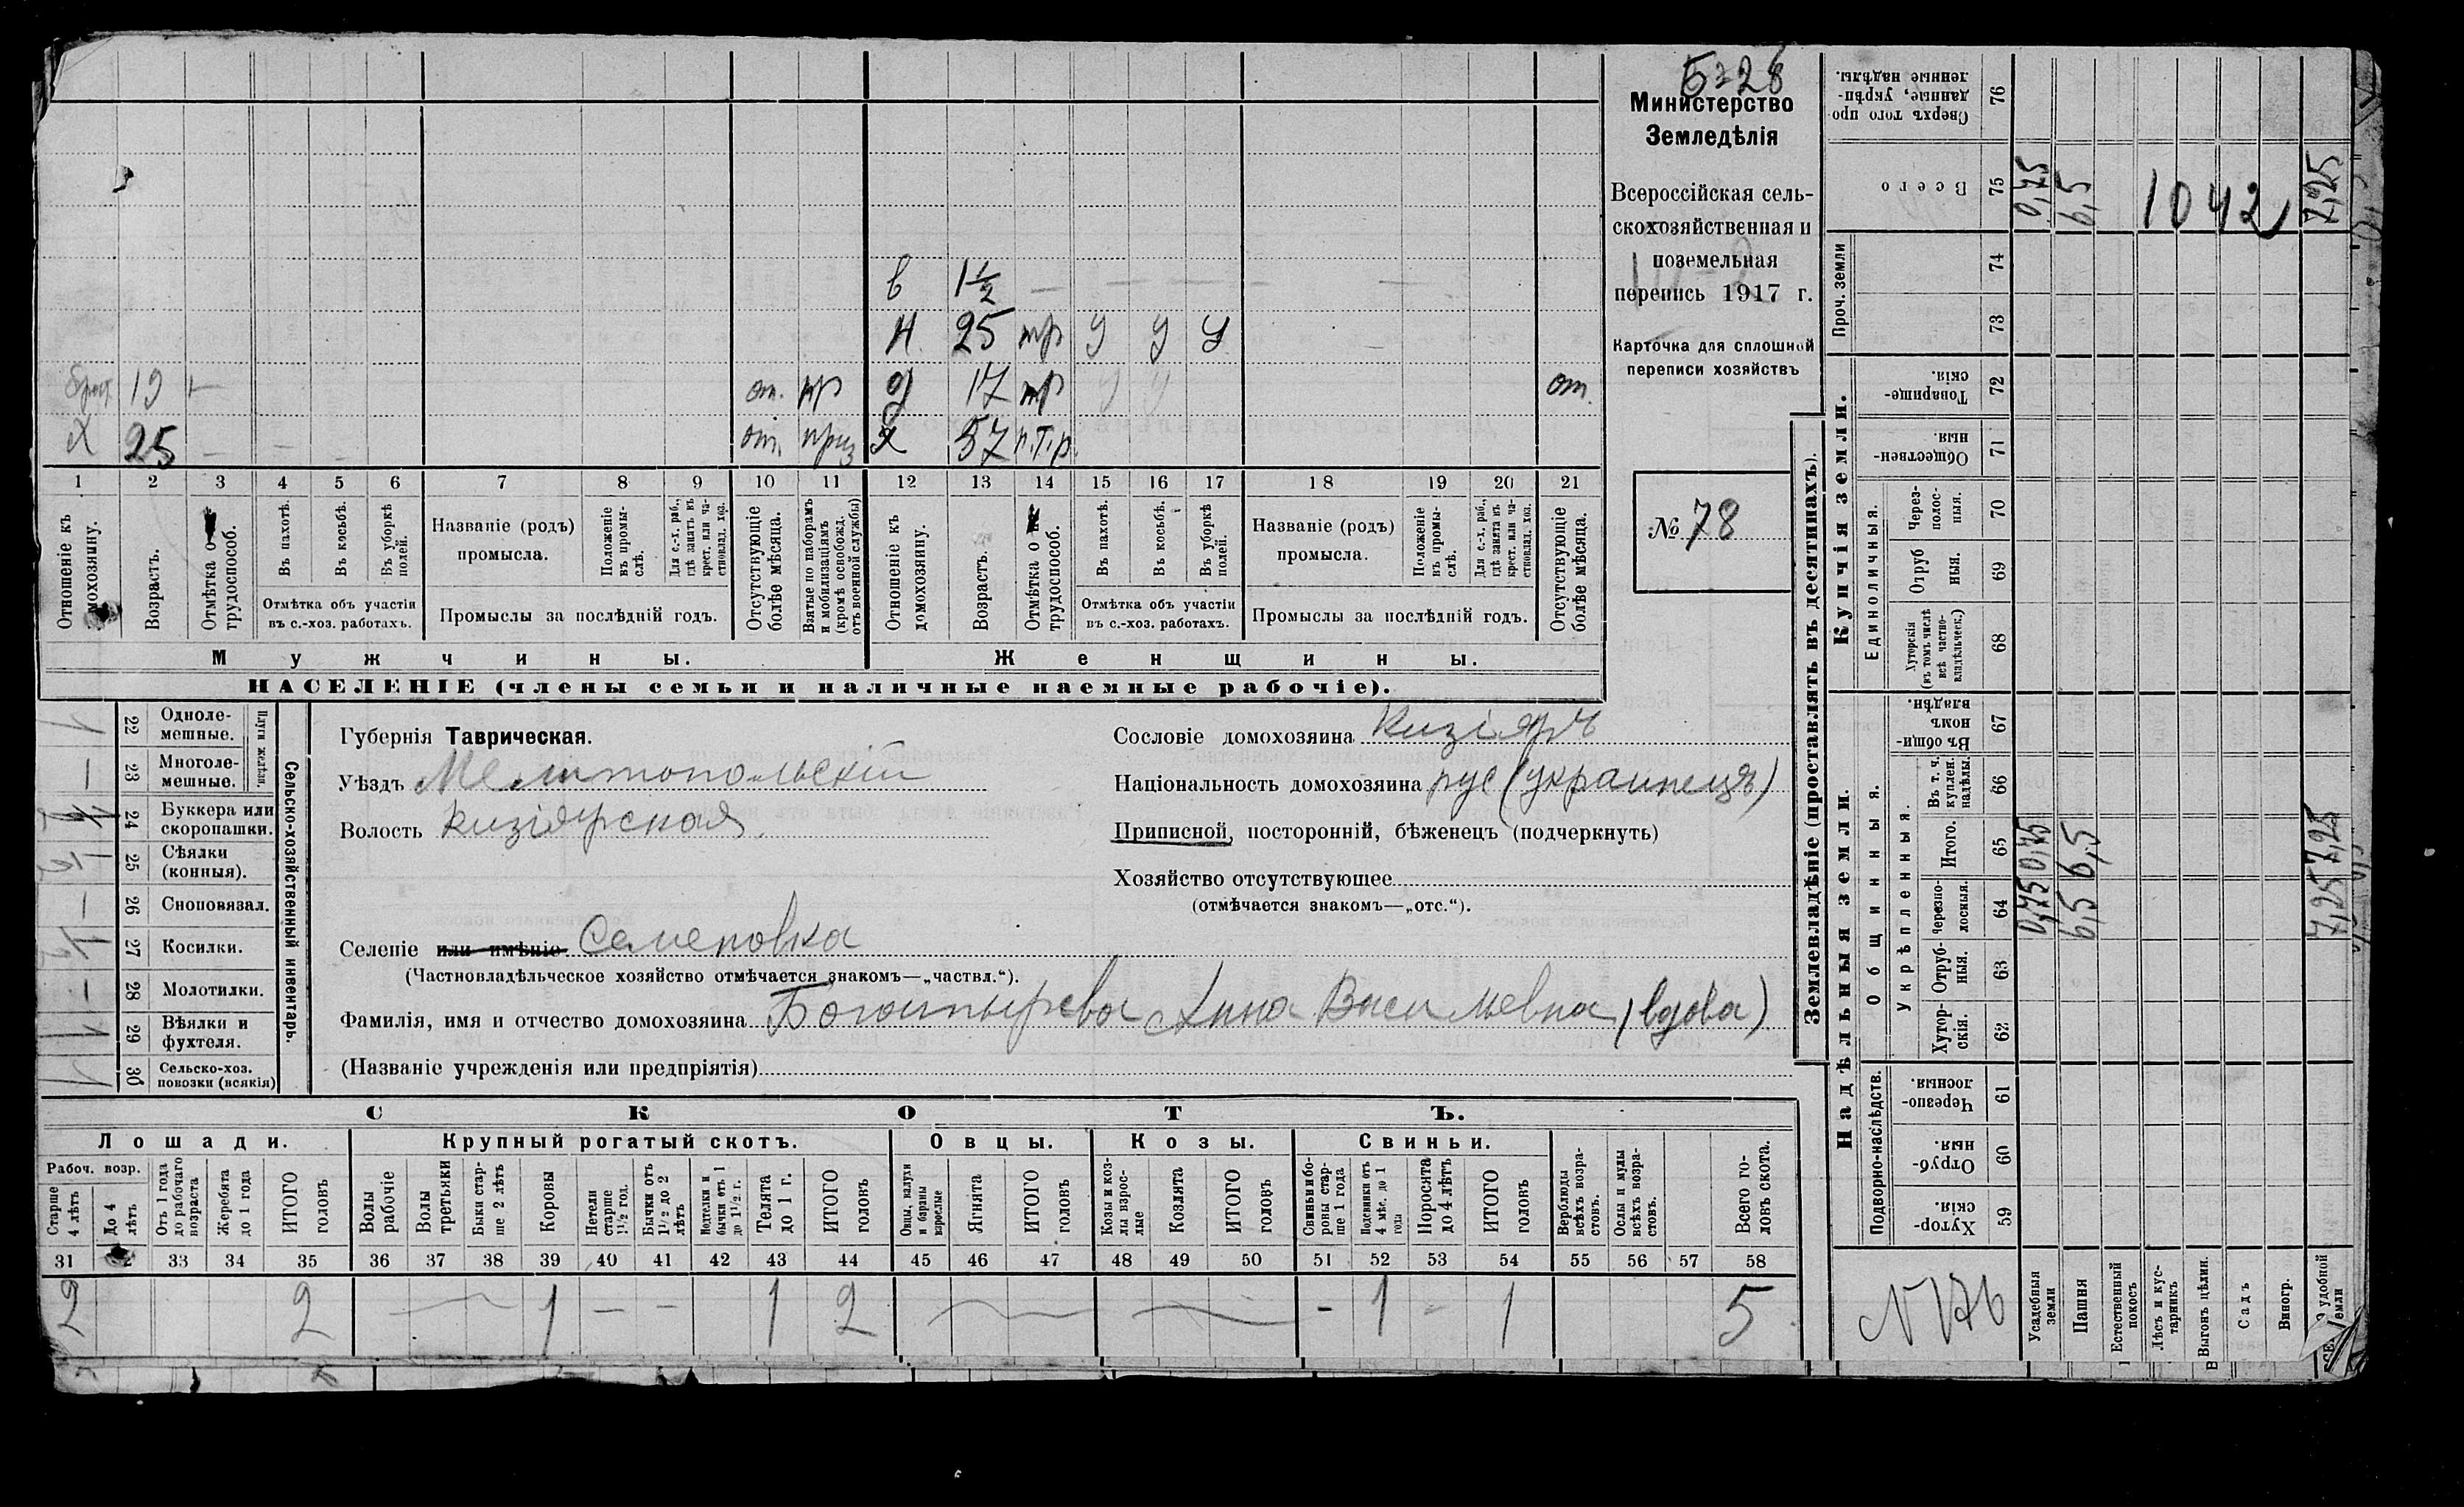 5228
Министерство
Земледѣлія
Всероссійская сель-
скохозяйственная и
поземельная
перепись 1917 г.
Карточка для сплошной
переписи хозяйствъ
№ 78
в 1½
н 25 тр у у у
19 от. пр д 17 тр у у от.
х 25 от. приз х 57 п.т.р.
1 2 3 4 5 6 7 8 9 10 11 12 13 14 15 16 17 18 19 20 21
Отношеніе къ домохозяину.
Возрастъ.
Отмѣтка о трудоспособ.
Въ пахотѣ.
Въ косьбѣ.
Въ уборкѣ полей.
Отмѣтка объ участіи
въ с.-хоз. работахъ.
Названіе (родъ)
промысла.
Положеніе въ промы-
слѣ.
Для с.-х. раб.,
гдѣ занятъ въ
крест. или ча-
стновлад. хоз.
Промыслы за послѣдній годъ.
Отсутствующіе
болѣе мѣсяца.
Взятые по наборамъ
и мобилизаціямъ
(кромѣ освобожд.
отъ военной службы)
Отношеніе къ
домохозяину.
Возрастъ.
Отмѣтка о
трудоспособ.
Въ пахотѣ.
Въ косьбѣ.
Въ уборкѣ
полей.
Отмѣтка объ участіи
въ с.-хоз. работахъ.
Названіе (родъ)
промысла.
Положеніе
въ промы-
слѣ.
Для с.-х. раб.,
гдѣ занята въ
крест. или ча-
стновлад. хоз.
Промыслы за послѣдній годъ.
Отсутствующіе
болѣе мѣсяца.
Мужчины.
Женщины.
НАСЕЛЕНІЕ (члены семьи и наличные наемные рабочіе).
Сельско-хозяйственный инвентарь.
Плуги желѣзн.
1 22 Одноле-
мешные.
— 23 Многоле-
мешные.
24 Буккера или
скоропашки.
25 Сѣялки
(конныя).
— 26 Сноповязал.
27 Косилки.
— 28 Молотилки.
1 29 Вѣялки и
фухтеля.
1 30 Сельско-хоз.
повозки (всякія)
Губернія Таврическая.
Уѣздъ Мелитопольскій
Волость Кизіярская
Селеніе или имѣніе Семеновка
(Частновладѣльческое хозяйство отмѣчается знакомъ—„частвл.“).
Фамилія, имя и отчество домохозяина Богатырева Анна Васильевна (вдова)
(Названіе учрежденія или предпріятія)
Сословіе домохозяина Кизіяръ
Національность домохозяина рус (украинецъ)
Приписной, посторонній, бѣженецъ (подчеркнуть)
Хозяйство отсутствующее
(отмѣчается знакомъ—„отс.“).
СКОТЪ.
Лошади. Крупный рогатый скотъ. Овцы. Козы. Свиньи.
Рабоч. возр.
Старше
4 лѣтъ
До 4
лѣтъ
Отъ 1 года
до рабочаго
возраста
Жеребята
до 1 года
ИТОГО
головъ
Волы
рабочіе
Волы
третьяки
Быки стар-
ше 2 лѣтъ
Коровы
Нетели
старше
1½ год.
Бычки отъ
1½ до 2
лѣтъ
Нетелки и
бычки отъ 1
до 1½ г.
Телята
до 1 г.
ИТОГО
головъ
Овцы, валухи
и бараны
взрослые
Ягнята
ИТОГО
головъ
Козы и коз-
лы взрос-
лые
Козлята
ИТОГО
головъ
Свиньи и бо-
ровы стар-
ше 1 года
Подсвинки отъ
4 мѣс. до 1
года
Поросята
до 4 лѣтъ
ИТОГО
головъ
Верблюды
всѣхъ возра-
стовъ.
Ослы и мулы
всѣхъ возра-
стовъ.
Всего го-
ловъ скота.
31 33 34 35 36 37 38 39 40 41 42 43 44 45 46 47 48 49 50 51 52 53 54 55 56 57 58
2 2 1 — — 1 2 - 1 - 1 5
Землевладѣніе (проставлять въ десятинахъ).
Сверхъ того про
данные, укрѣп-
ленные надѣлы. 76
Всего 75 0,75 6,5 1042 7,25
Проч. земли
74
73
Купчія земли.
Товарище-
скія. 72
Обществен-
ныя. 71
Единоличныя.
Через-
полос-
ныя. 70
Отруб
ныя. 69
Хуторскія
(въ томъ числѣ
всѣ частно-
владѣльческ.) 68
Надѣльныя земли.
Общинныя.
Въ общи-
номъ
владѣн. 67
Укрѣпленныя.
Въ т. ч.
куплен.
надѣлы. 66
Итого. 65 0,75 6,5 7,25
Черезпо-
лосныя. 64 0,75 6,5 7,25
Отруб-
ныя. 63
Хутор-
скія. 62
Подворно-наслѣдств.
Черезпо-
лосныя. 61
Отруб-
ныя. 60
Хутор-
скія. 59
N 176
Усадебныя
земли
Пашня
Естественный
покосъ
Лѣсъ и кус-
тарникъ
Выгонъ цѣлин.
Садъ
Виногр.
удобной
земли